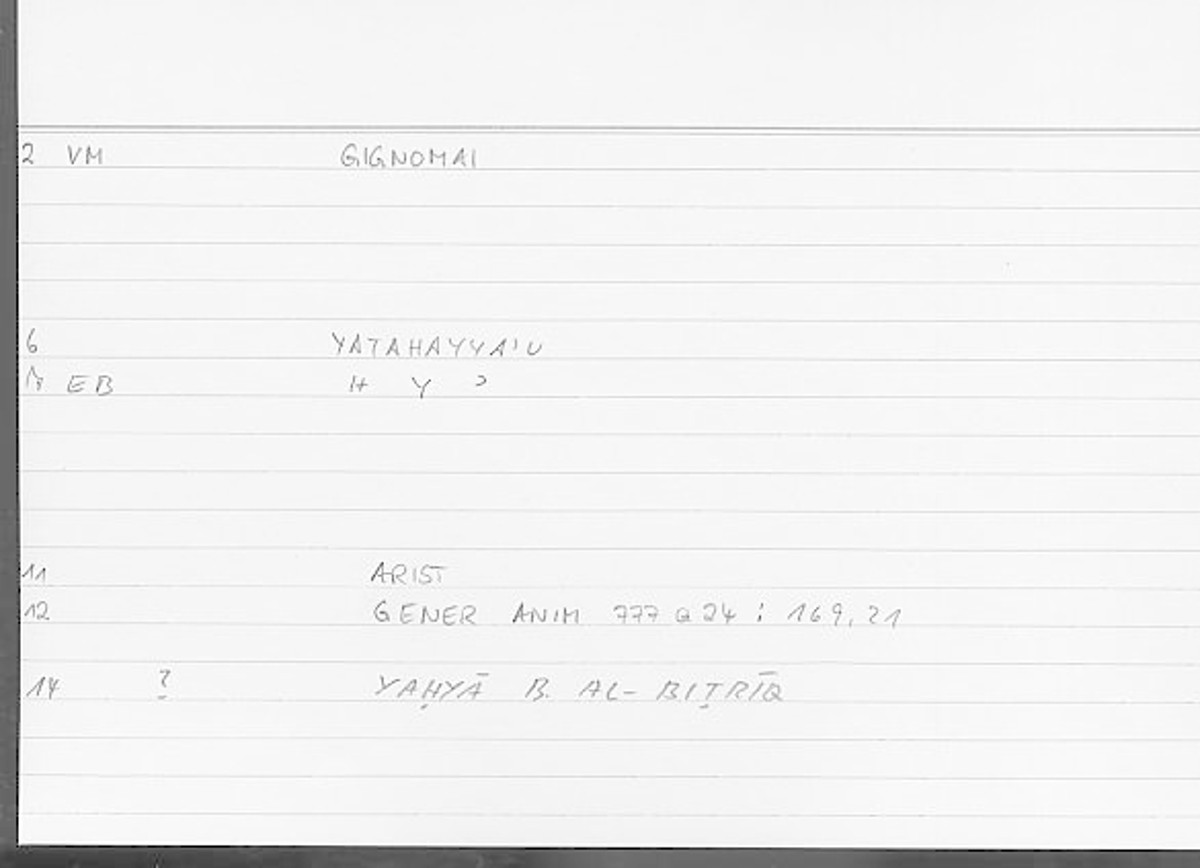 2 VM GIGNOMAI
6 YATAHAYYA'U
EB H Y ᵓ
11 ARIST
12 GENER ANIM 777 a 24 : 169, 21
14 ? YAḤYĀ B. AL-BIṬRĪQ